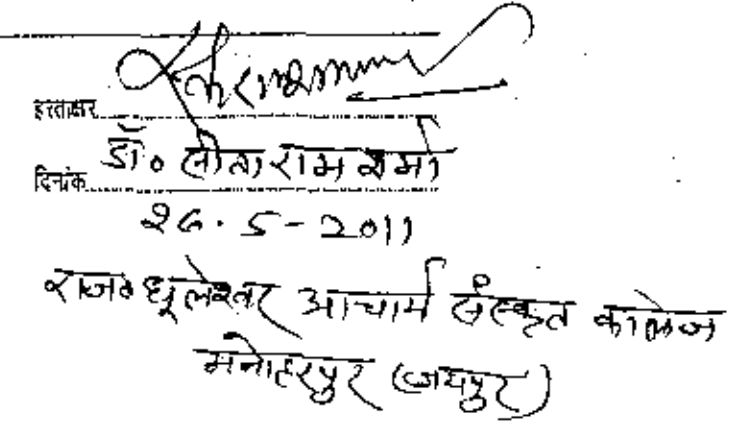 हस्ताक्षर
डॉ० सीताराम शर्मा
दिनांक
26.5-2011
राज० धूलेश्वर आचार्य संस्कृत कालेज
मनोहरपुर (जयपुर)